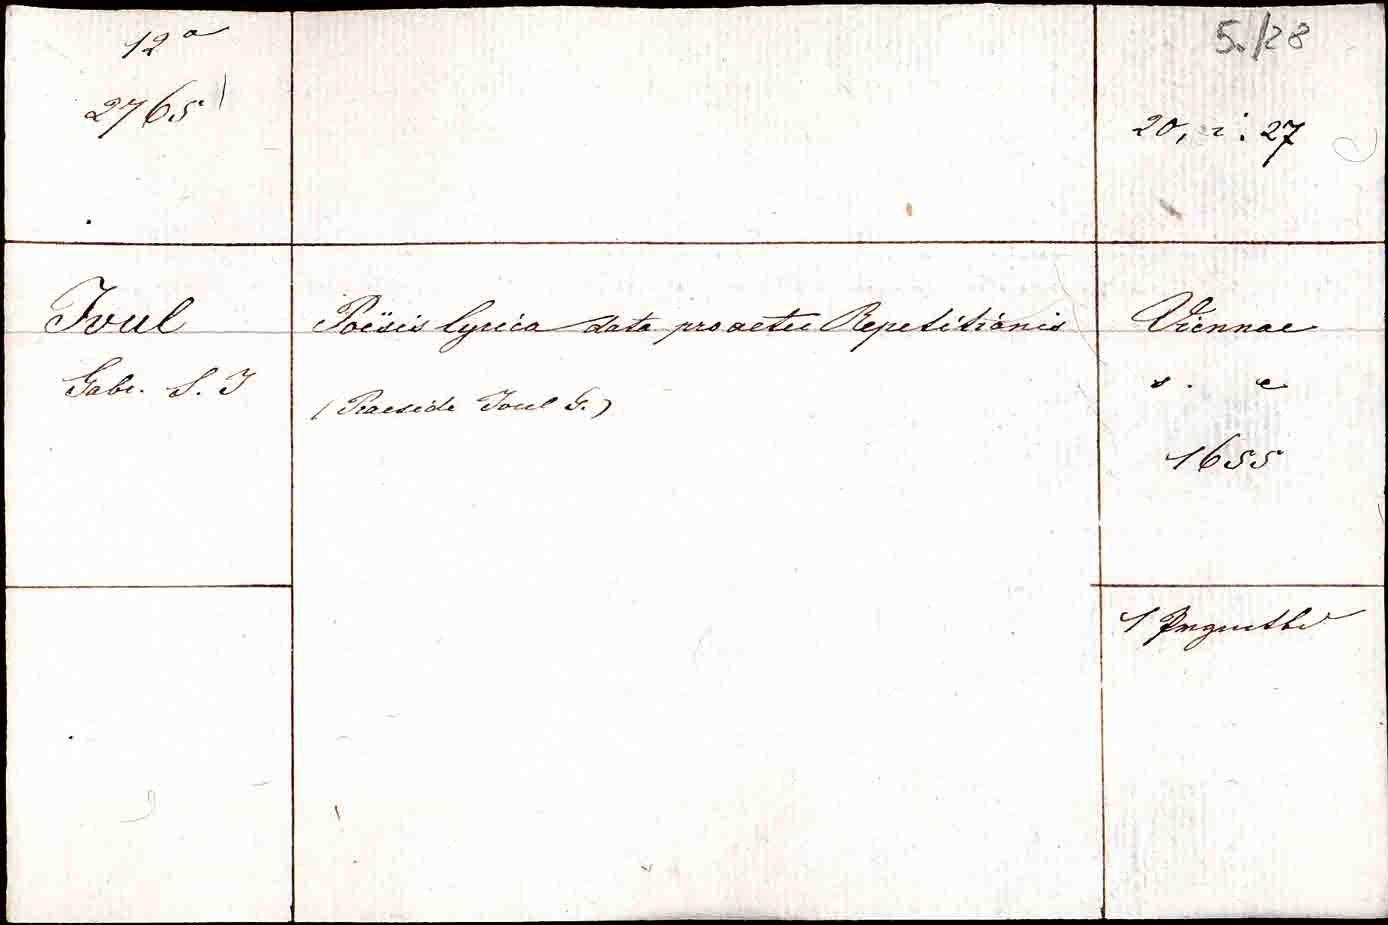 12a
2765
5./28
20, i. 27
Ivul
Gabr. S. J
Poësis lyrica data pro actu Repetitionis
(Praeside Ivul G.)
Viennae
s. a
1655
1